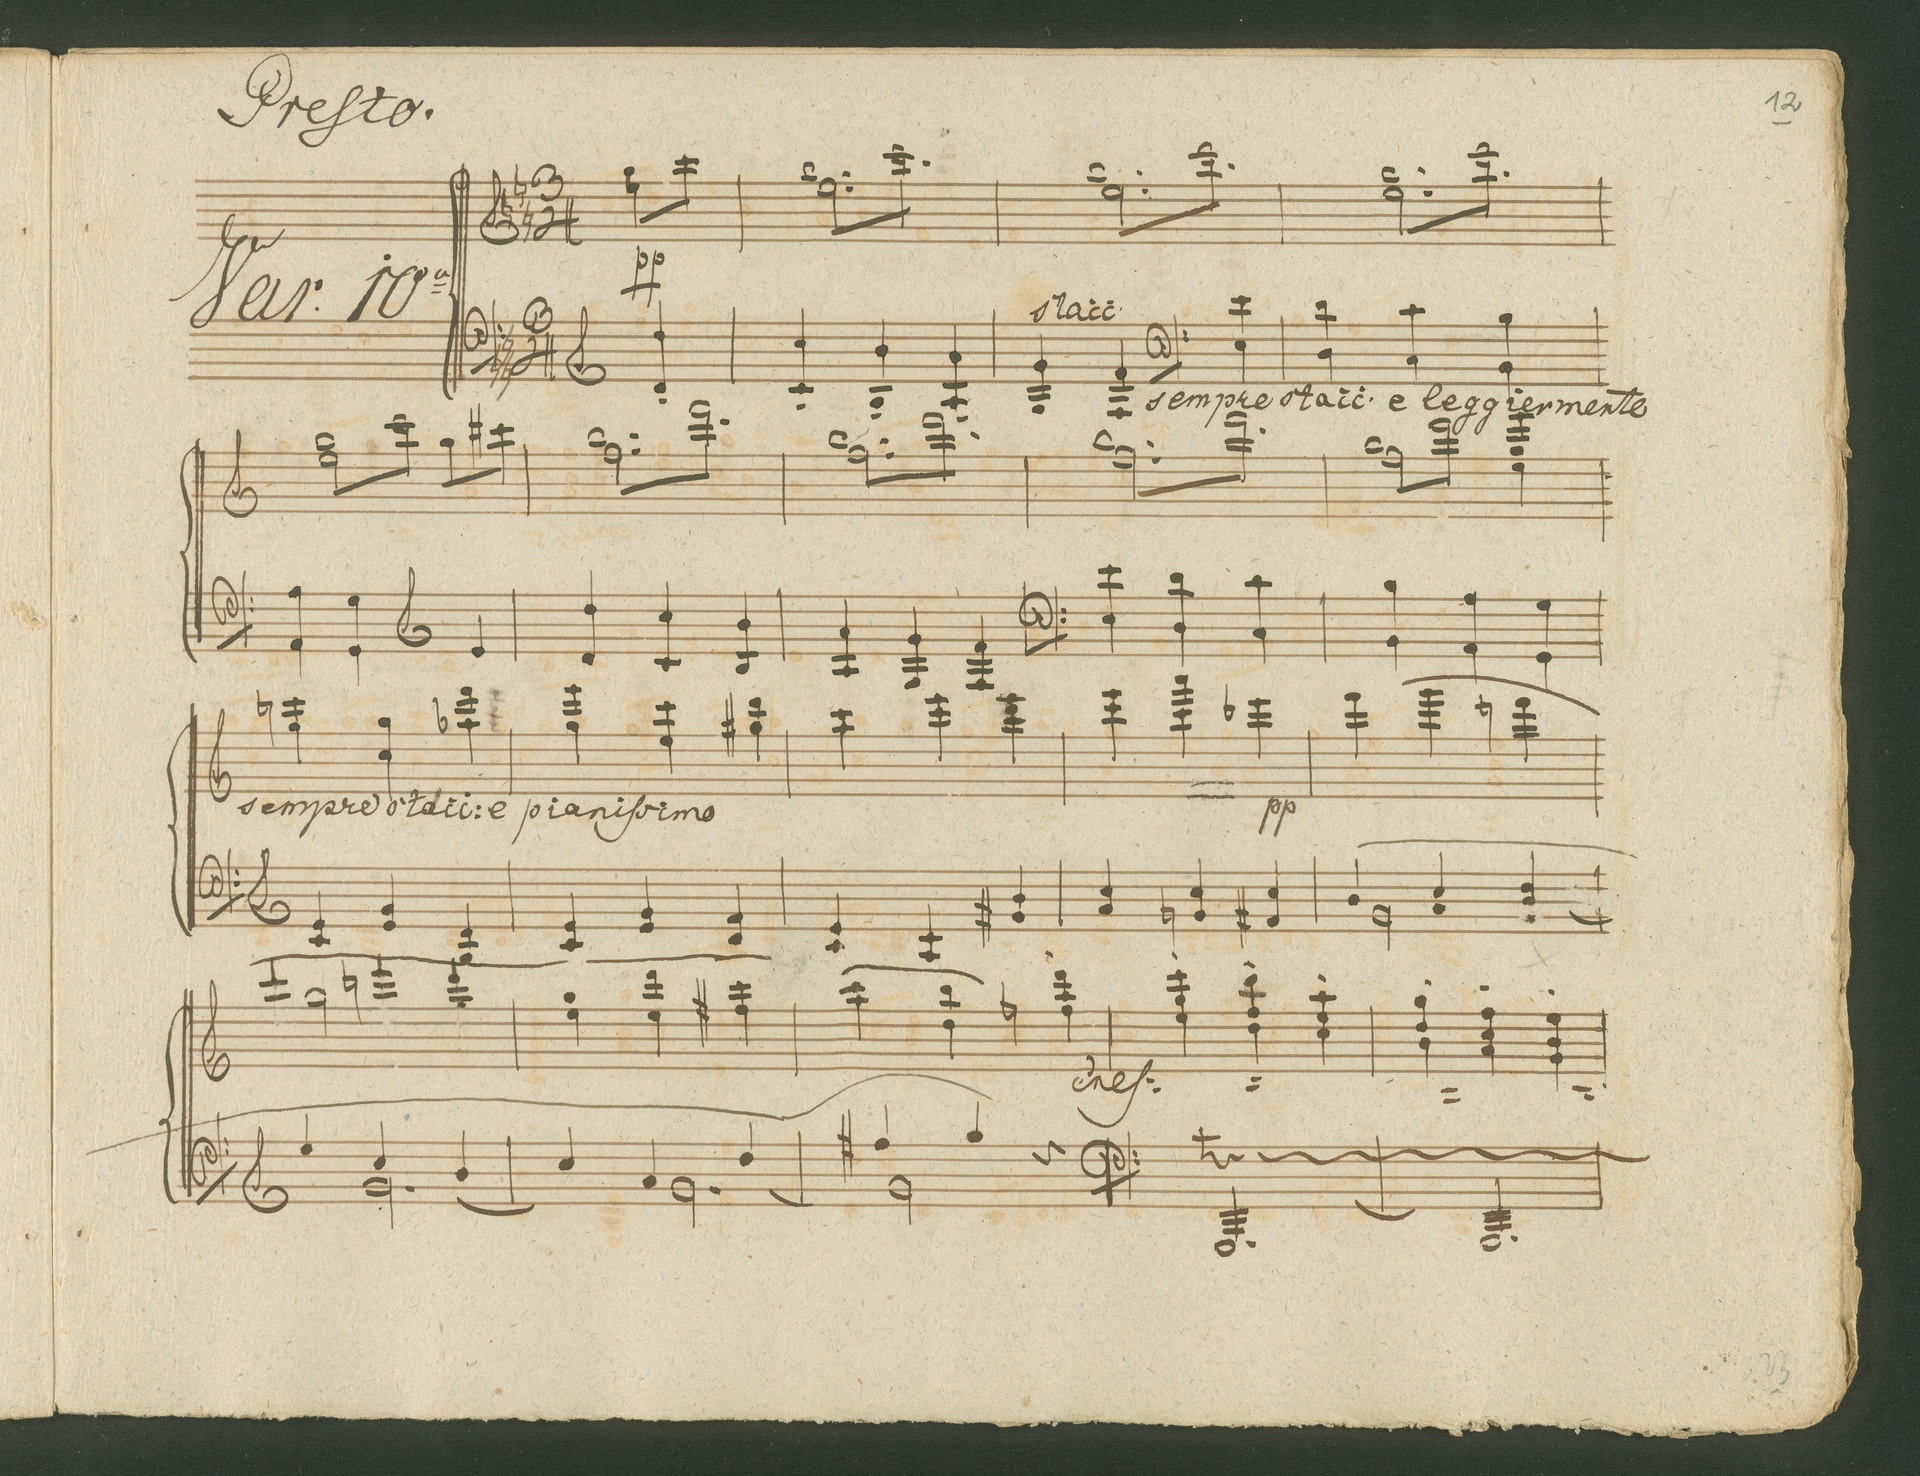 Presto.
12
Var. 10ª
3
4
pp
3
4
stacc.
sempre stacc. e leggiermente
sempre stacc: e pianissimo
pp
Cres: